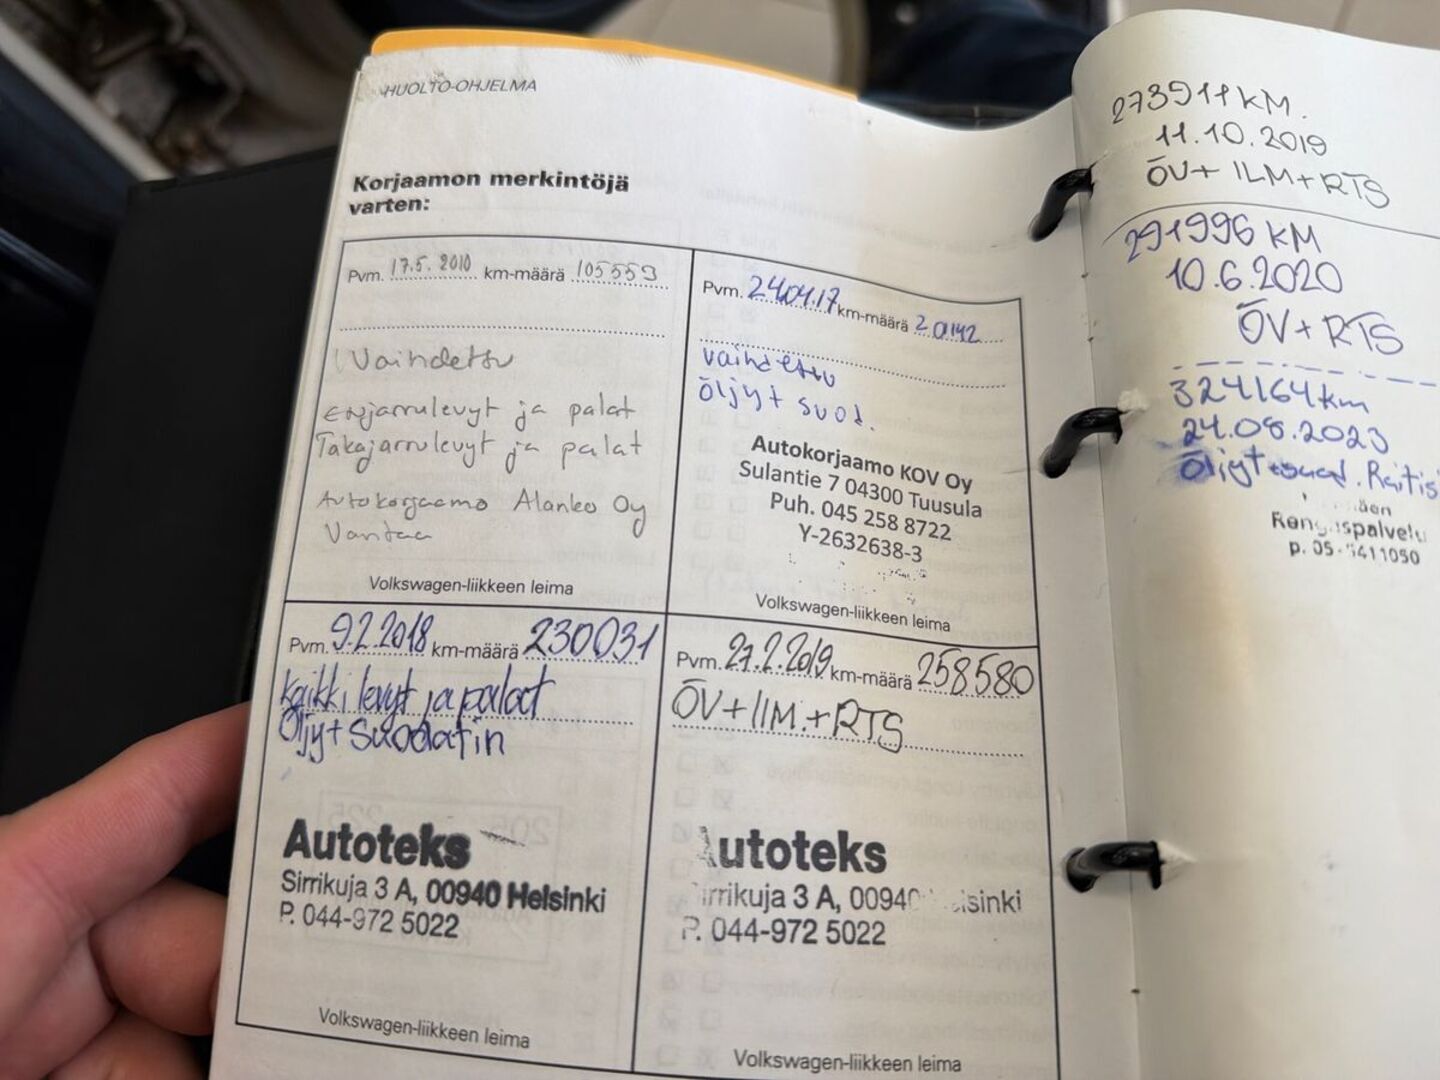 HUOLTO-OHJELMA
Korjaamon merkintöjä
varten:
Pvm. 17.5. 2010 km-määrä 105553
Vaihdettu
etujarrulevyt ja palat
Takajarrulevyt ja palat
Autokorjaamo Alanko Oy
Vantaa
Volkswagen-liikkeen leima
Pvm. 24.04.17 km-määrä
vaihdettu
öljyt suod.
Autokorjaamo KOV Oy
Sulantie 7 04300 Tuusula
Puh. 045 258 8722
Y-2632638-3
Volkswagen-liikkeen leima
Pvm. 9.2.2018 km-määrä 230031
Kaikki levyt ja palat
Öljyt suodatin
Autoteks
Sirrikuja 3 A, 00940 Helsinki
P. 044-972 5022
Volkswagen-liikkeen leima
Pvm. 27.2.2019 km-määrä 258580
ÖV+IIM.+RTS
Autoteks
Sirrikuja 3 A, 00940 Helsinki
P. 044-972 5022
Volkswagen-liikkeen leima
273911 KM.
11.10.2019
ÖV+ ILM+RTS
291996 KM
10.6.2020
ÖV+RTS
324164 km
24.08.2023
Öljyt+suod. Raitis
Rengaspalvelu